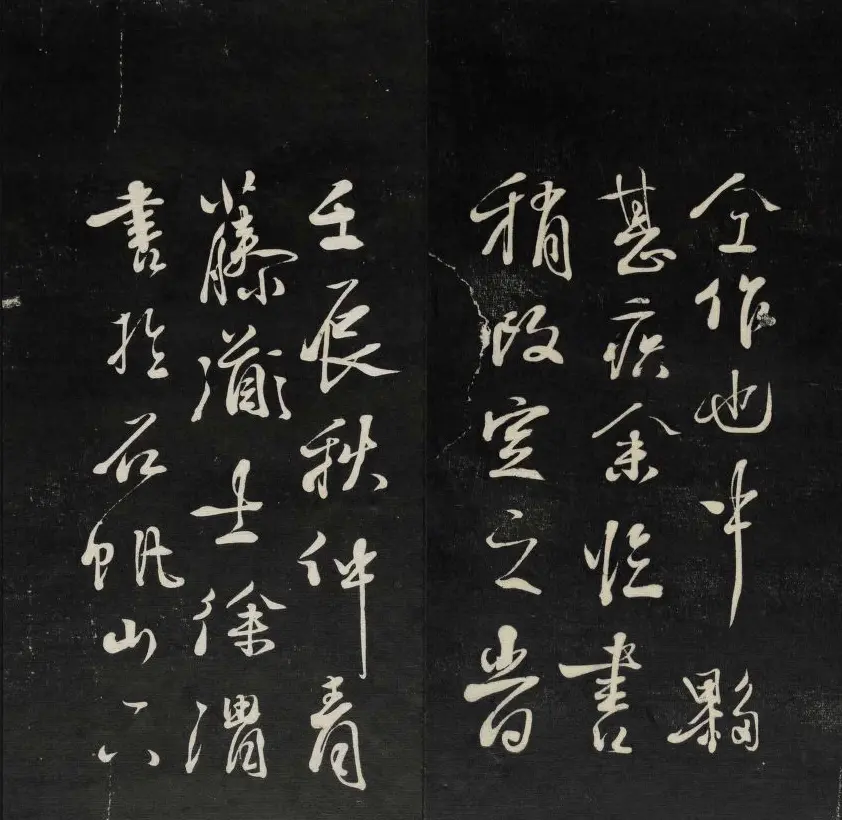 仝作也中夥
甚疾余臨書
稍改定之旹
壬辰秋仲青
藤道士徐渭
書於石帆山下